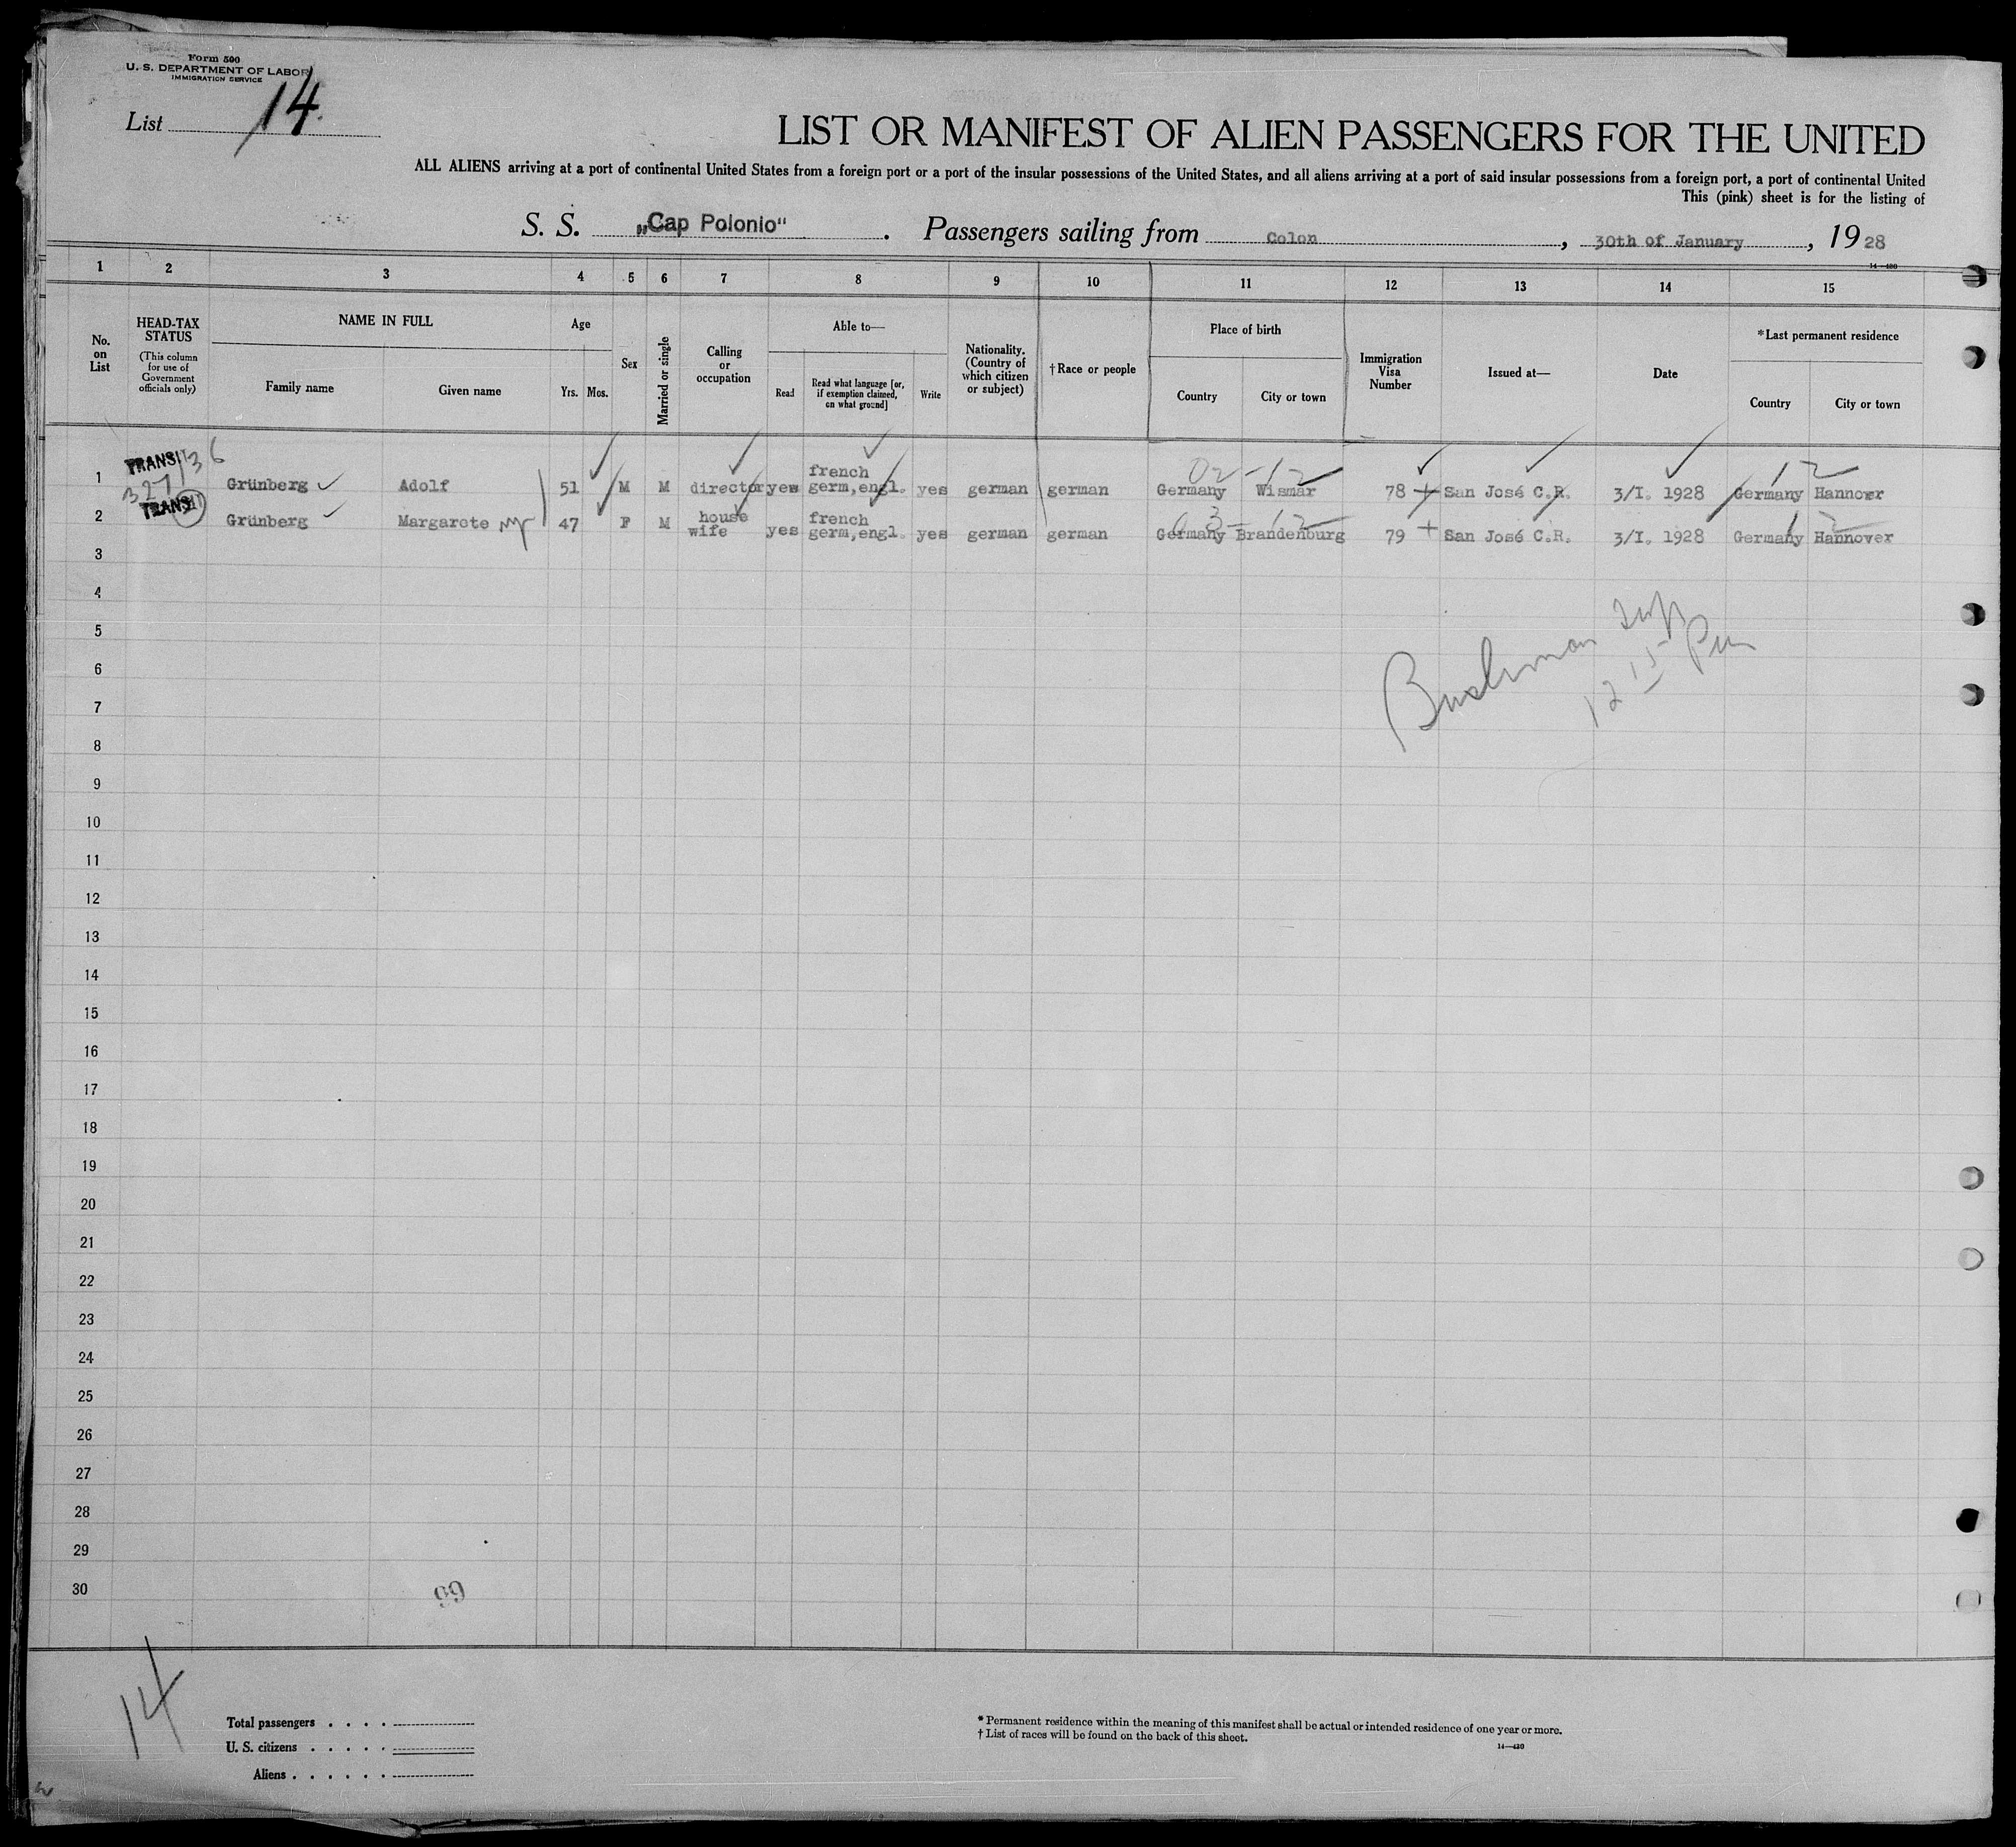 Form 500
U. S. DEPARTMENT OF LABOR
IMMIGRATION SERVICE
List 14.
LIST OR MANIFEST OF ALIEN PASSENGERS FOR THE UNITED
ALL ALIENS arriving at a port of continental United States from a foreign port or a port of the insular possessions of the United States, and all aliens arriving at a port of said insular possessions from a foreign port, a port of continental United
This (pink) sheet is for the listing of
S. S. „Cap Polonio“ . Passengers sailing from Colon , 30th of January , 19 28
14—430
1 2 3 4 5 6 7 8 9 10 11 12 13 14 15
No. on List
HEAD-TAX STATUS
(This column for use of Government officials only)
NAME IN FULL
Family name
Given name
Age
Yrs. Mos.
Sex
Married or single
Calling or occupation
Able to—
Read
Read what language [or, if exemption claimed, on what ground]
Write
Nationality. (Country of which citizen or subject)
†Race or people
Place of birth
Country
City or town
Immigration Visa Number
Issued at—
Date
*Last permanent residence
Country
City or town
TRANSIT 36
327
02-12 12
1 Grünberg Adolf 51 M M director yes french germ,engl. yes german german Germany Wismar 78 San José C.R. 3/I. 1928 Germany Hannover
TRANS
03-12 12
2 Grünberg Margarete 47 F M house wife yes french germ,engl. yes german german Germany Brandenburg 79 San José C.R. 3/I. 1928 Germany Hannover
3
4
5
6
Bushman Insp
12 15 Pm
7
8
9
10
11
12
13
14
15
16
17
18
19
20
21
22
23
24
25
26
27
28
29
30
14
Total passengers . . . .
U. S. citizens . . . . .
Aliens . . . . . .
* Permanent residence within the meaning of this manifest shall be actual or intended residence of one year or more.
† List of races will be found on the back of this sheet.
14—430